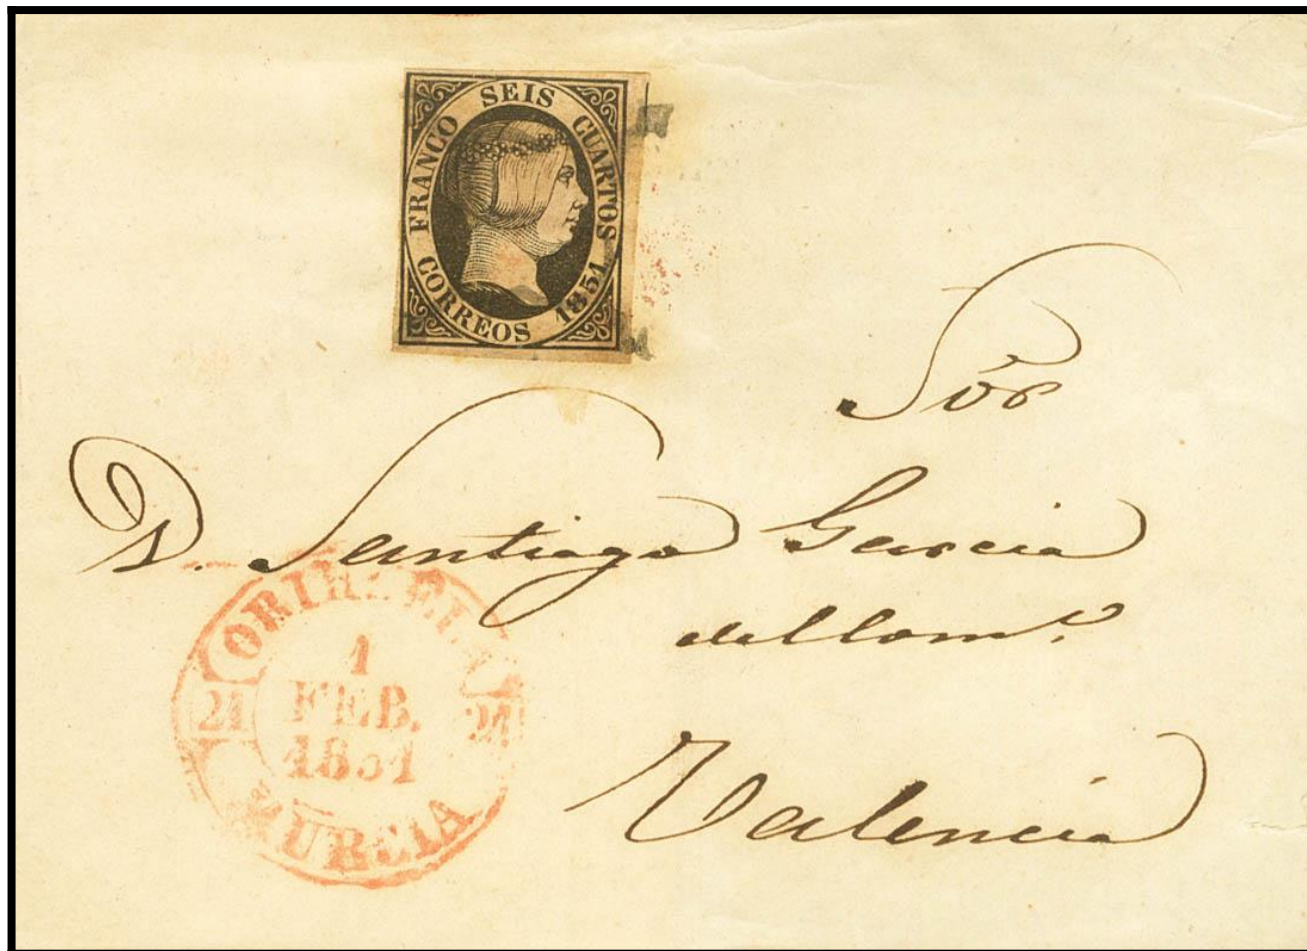 FRANCO SEIS CUARTOS
CORREOS 1851
Sór
D. Santiago Garcia
del Com.º
Valencia
ORIHUELA
21 1 21
FEB.
1851
MURCIA